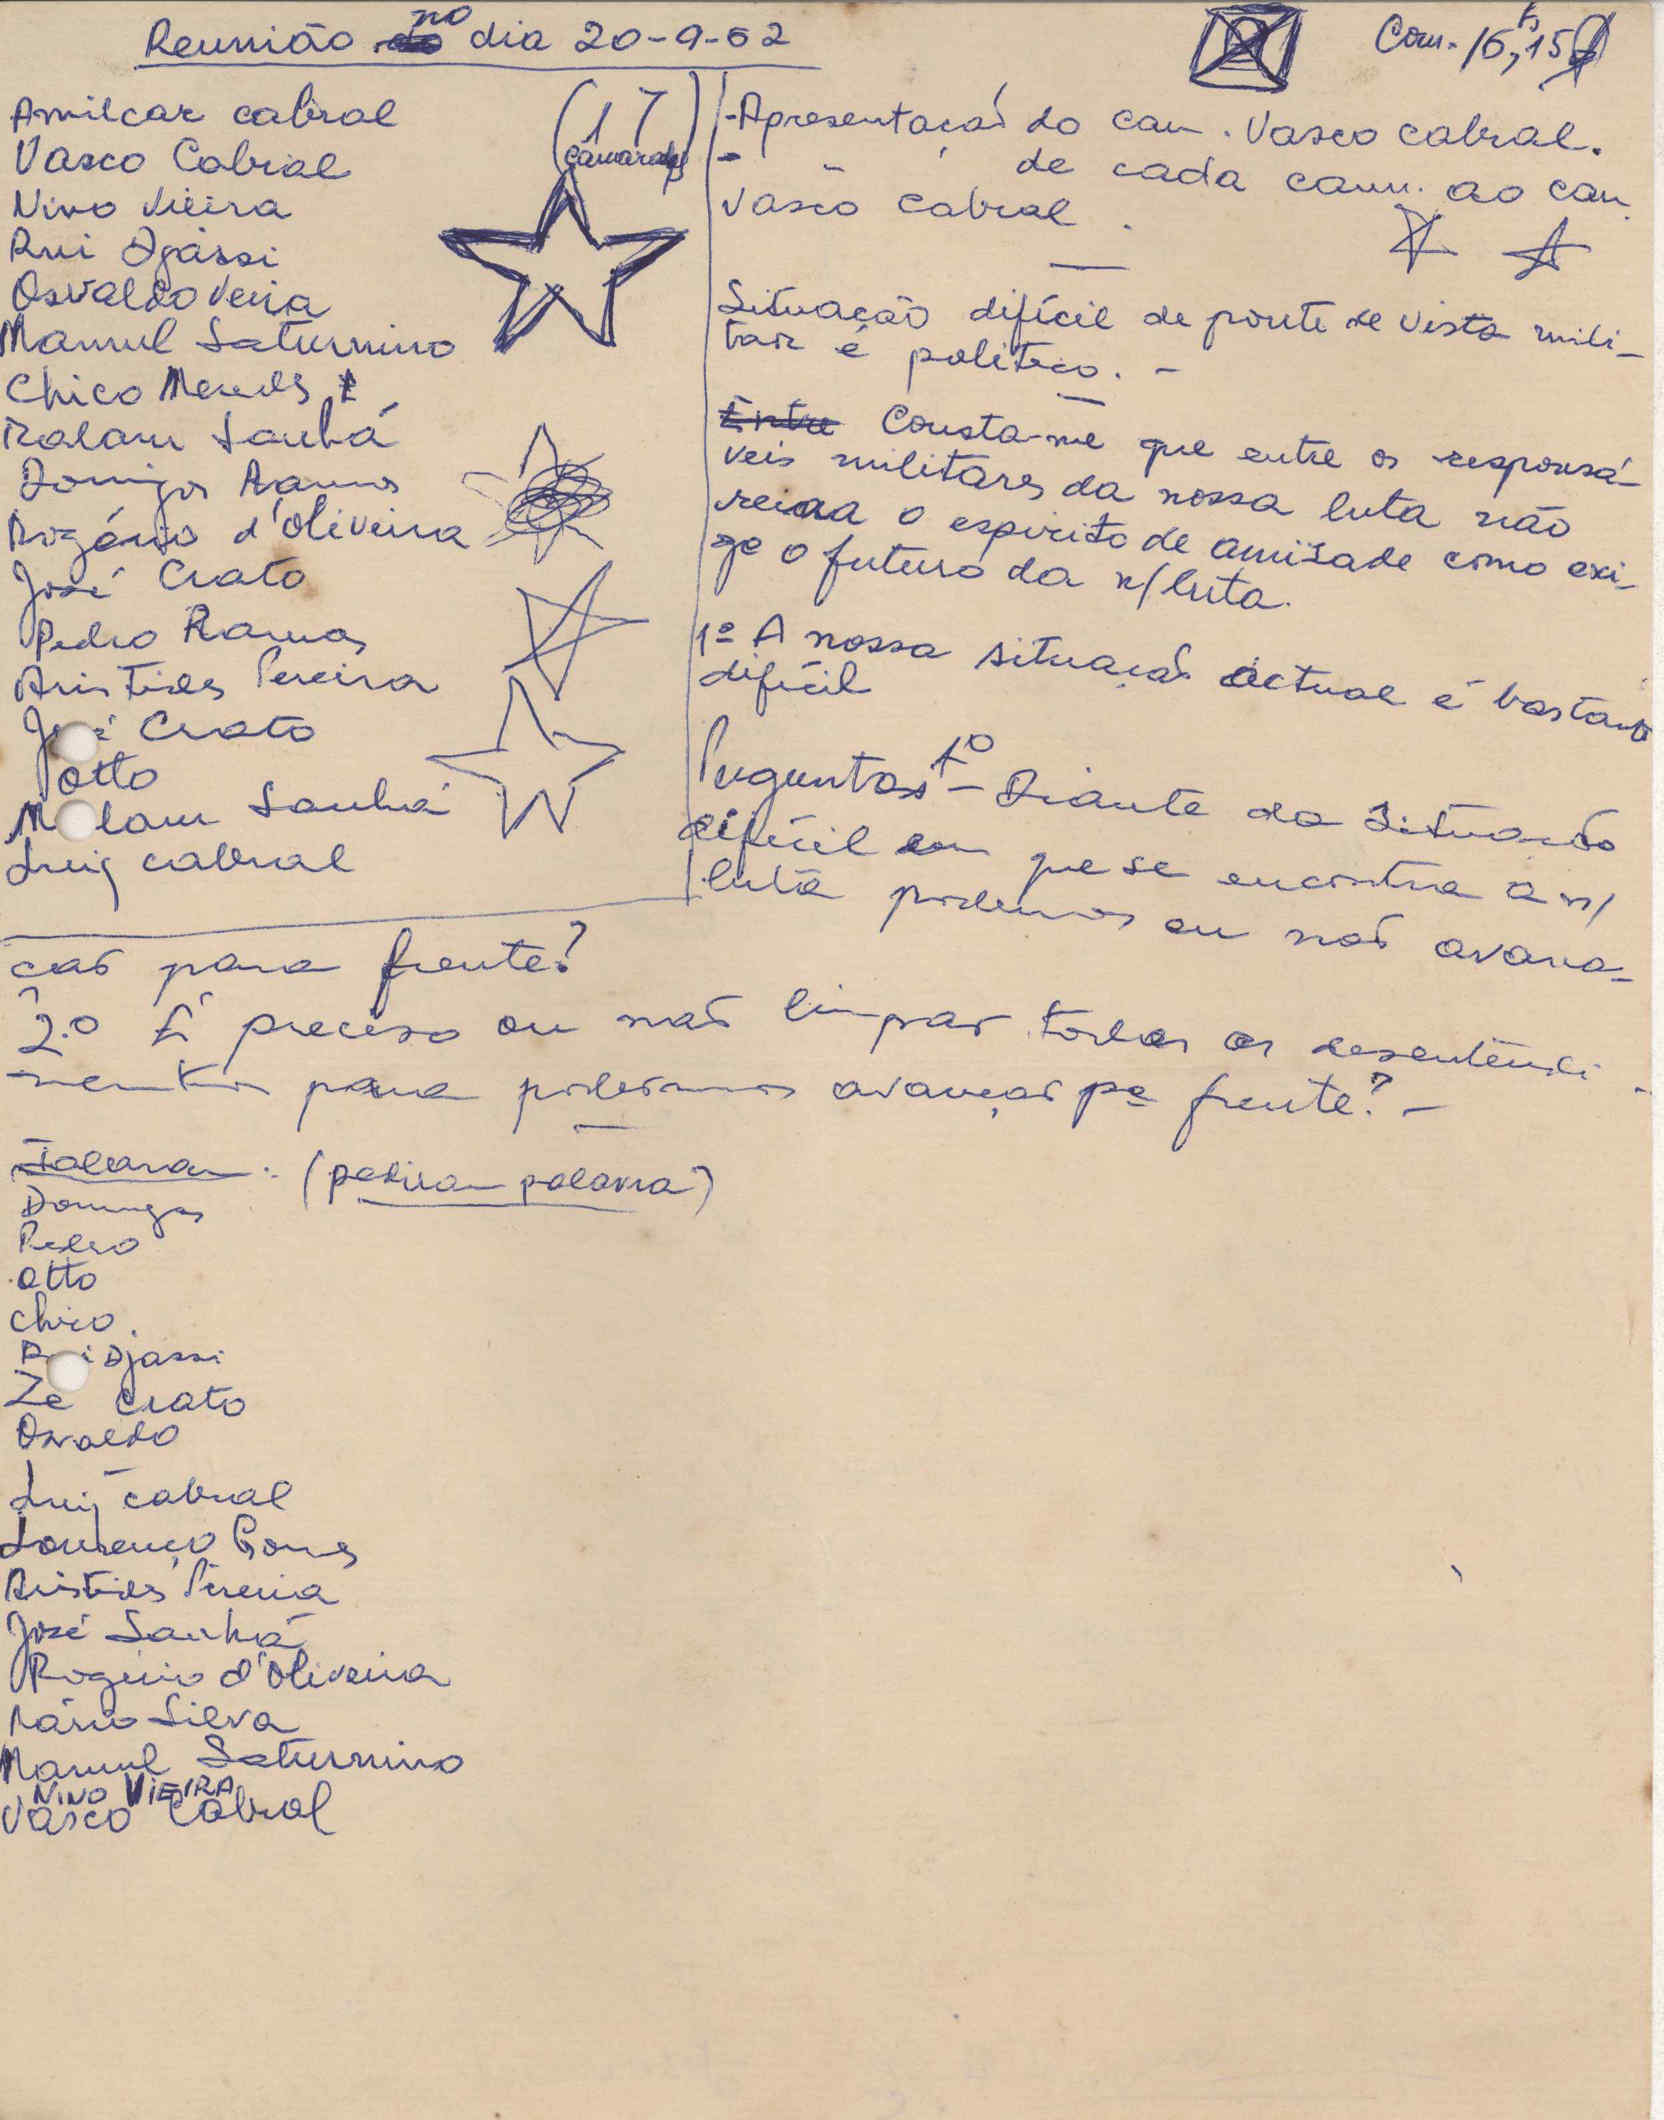 Reunião no dia 20-9-62
Com. 16,15
Amilcar Cabral
Vasco Cabral
Nino Vieira
Rui Djassi
Osvaldo Vieira
Manuel Saturnino
Chico Mendes
Malam Sanhá
Domingos Ramos
Rogério d'Oliveira
José Crato
Pedro Ramos
Aristides Pereira
José Crato
Otto
Malam Sanhá
Luiz Cabral
(17
camaradas)
-Apresentação do cam. Vasco Cabral.
- " de cada cam. ao cam.
Vasco Cabral.
Situação difícil de ponte de vista mili-
tar e politico. -
Entre Consta-me que entre os responsá-
veis militares da nossa luta não
reina o espirito de amisade como exi-
ge o futuro da n/ luta.
1º A nossa situação actual é bastante
difícil
Perguntas 1º - Diante da situação
difícil em que se encontra a n/
luta podemos ou não avan-
çar para frente?
2.º É preciso ou não limpar todos os desentendi-
mentos para podermos avançar pª frente? -
Falaram: (pediram palavra)
Domingos
Pedro
Otto
Chico.
Rui Djassi
Zé Crato
Osvaldo
Luiz Cabral
Lourenço Gomes
Aristides Pereira
José Sanhá
Rogério d'Oliveira
Mário Silva
Manuel Saturnino
NINO VIEIRA
Vasco Cabral